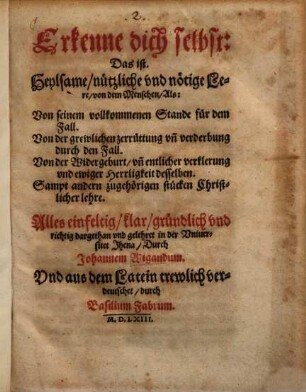 2.
Erkenne dich selbst:
Das ist.
Heylsame/nützliche vnd nötige Le-
re/von dem Menschen/Als:
Von seinem vollkommenen Stande für dem
Fall.
Von der grewlichen zerrüttung vñ verderbung
durch den Fall.
Von der Widergeburt/vñ entlicher verklerung
vnd ewiger Herrligkeit desselben.
Sampt andern zugehörigen stücken Christ-
licher lehre.
Alles einfeltig/klar/gründlich vnd
richtig dargethan vnd gelehret in der Vniuer-
sitet Jhena/Durch
Johannem Wigandum.
Vnd aus dem Latein trewlich ver-
deutschet/durch
Basilium Fabrum.
M. D. LXIII.